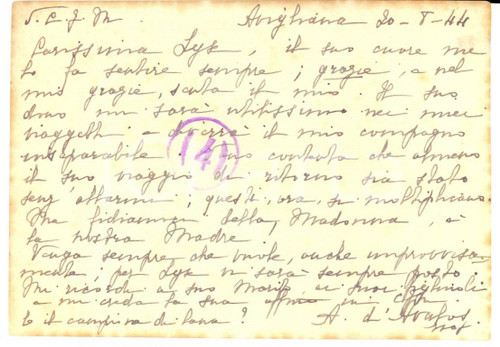 S. C. J. M. Avigliana 20-8-44
Carissima Lyx, il suo cuore me
lo fa sentire sempre; grazie, e nel
mio grazie, senta il mio. Il suo
dono mi sarà utilissimo nei miei
viaggetti e diverrà il mio compagno
inseparabile. Sono contenta che almeno
il suo viaggio di ritorno sia stato
senz'allarmi; questi, ora, si moltiplicano.
Ma fidiamoci della Madonna, è
la nostra Madre.
Venga sempre, che vuole, anche improvvisa-
mente; per Lyx vi sarà sempre posto.
Mi ricordi a suo Marito, ai suoi figliuoli
e mi creda la sua affma in
E il campione di lana? A. d'Avalos
(14)